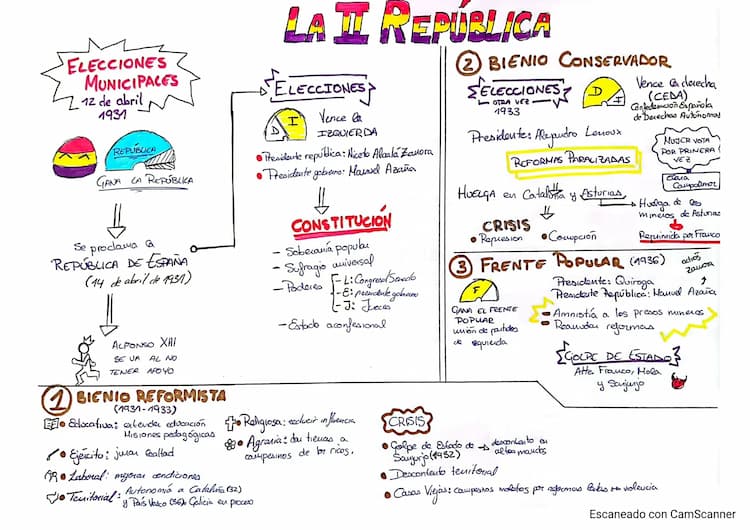 LA II REPÚBLICA
ELECCIONES
MUNICIPALES
12 de abril
1931
REPÚBLICA
GANA LA REPÚBLICA
Se proclama la
REPÚBLICA DE ESPAÑA
(14 de abril de 1931)
ALFONSO XIII
SE VA AL NO
TENER APOYO
ELECCIONES
D I
Vence la
IZQUIERDA
Presidente república: Niceto Alcalá Zamora
Presidente gobierno: Manuel Azaña
CONSTITUCIÓN
- Soberanía popular
- Sufragio universal
- Poderes
- L: Congreso/Senado
- E: presidente gobierno
- J: Jueces
- Estado aconfesional
2 BIENIO CONSERVADOR
ELECCIONES
OTRA VEZ
1933
D I
Vence la derecha
(CEDA)
Confederación Española
de Derechas Autónomas
Presidente: Alejandro Lerroux
REFORMAS PARALIZADAS
MUJER VOTA
POR PRIMERA
VEZ
Clara
Campoamor
HUELGA en Cataluña y Asturias
Huelga de los
mineros de Asturias
Reprimida por Franco
CRISIS
Represion
Corrupción
3 FRENTE POPULAR (1936)
adiós
Zamora
F
GANA EL FRENTE
POPULAR
unión de partidos
de izquierda
Presidente: Quiroga
Presidente República: Manuel Azaña
- Amnistía a los presos mineros
- Reanudar reformas
GOLPE DE ESTADO
Atte Franco, Mola
y Sanjurjo
1 BIENIO REFORMISTA
(1931-1933)
Educativa: extender educación
Misiones pedagógicas
Ejército: jurar lealtad
Laboral: mejorar condiciones
Territorial: Autonomía a Cataluña (32)
y País Vasco (36). Galicia en proceso
Religiosa: excluir influencia
Agraria: dar tierras a
campesinos de los ricos.
CRISIS
Golpe de Estado de → descontento en
Sanjurjo (1932) altos mandos
Descontento territorial
Casas Viejas: campesinos molestos por reformas lentas → violencia
Escaneado con CamScanner